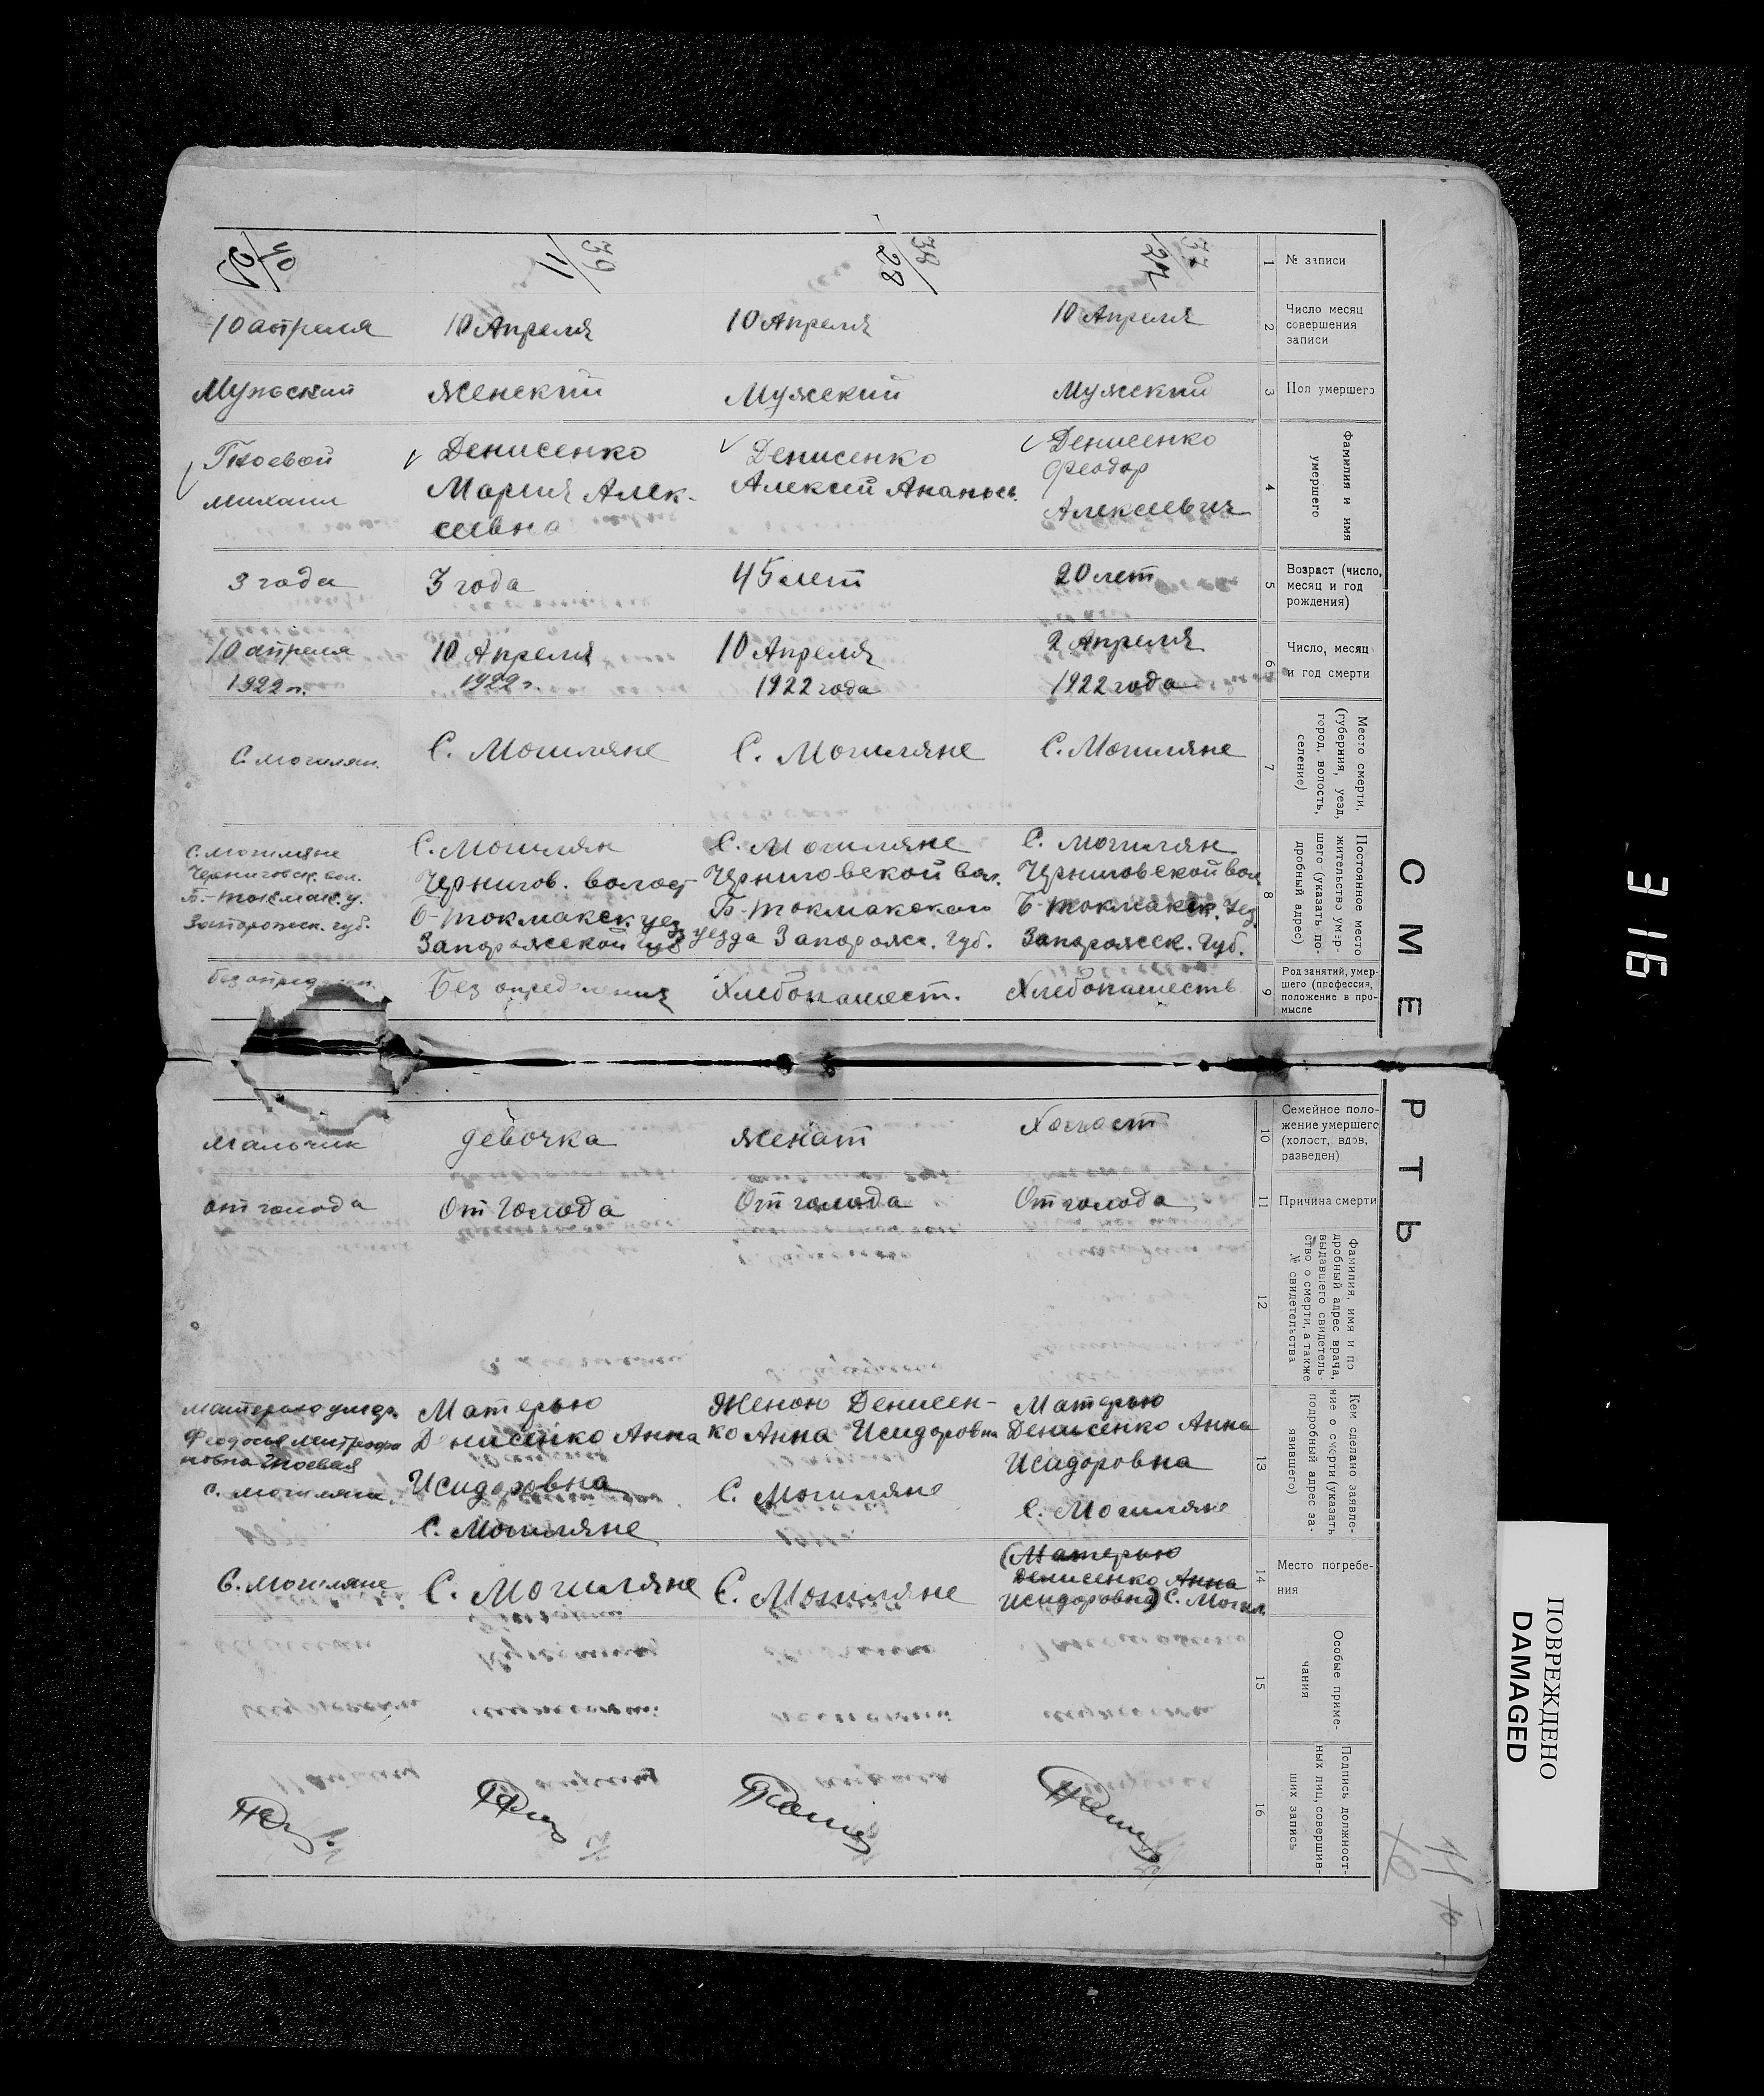 СМЕРТЬ
№ записи
1
37
27
38
28
39
11
40
Число месяц
совершения
записи
2
10 Апреля
10 Апреля
10 Апреля
10 апреля
Пол умершего
3
Мужский
Мужский
Женский
Мужский
Фамилия и имя
умершего
4
Денисенко
Феодор
Алексеевич
Денисенко
Алексей Ананьев.
Денисенко
Мария Алек-
сеевна
Михаил
Возраст (число,
месяц и год
рождения)
5
20 лет
45 лет
3 года
3 года
Число, месяц
и год смерти
6
2 Апреля
1922 года
10 Апреля
1922 года
10 Апреля
1922 г.
10 апреля
1922 г.
Место смерти,
(губерния, уезд,
город, волость,
селение)
7
С. Могиляне
С. Могиляне
С. Могиляне
С. Могилян.
Постоянное место
жительство умер-
шего (указать по-
дробный адрес)
8
С. Могилян
Черниговской вол
Б-Токмакск. уез.
Запорожск. Губ.
С. Могиляне
Черниговской вол.
Б-Токмакского
уезда Запорожс. Губ.
С. Могилян
Чернигов. волост
Б-Токмакск уез
Запорожской Губ
С. Могиляне
Черниговск. вол.
Б.-Токмак. у.
Запорожск. губ.
Род занятий, умер-
шего (профессия,
положение в про-
мысле
9
Хлебопашеств
Хлебопашест.
Без определения
без опред
Семейное поло-
жение умершего
(холост, вдов,
разведен)
10
Холост
женат
девочка
мальчик
Причина смерти
11
От голода
От голода
От Голода
от голода
Фамилия, имя и по
дробный адрес врача,
выдавшего свидетель-
ство о смерти, а также
№ свидетельства
12
Кем сделано заявле-
ние о смерти (указать
подробный адрес за-
явившего)
13
Матерью
Денисенко Анна
Исидоровна
С. Могиляне
Женою Денисен-
ко Анна Исидоровна
С. Могиляне
Матерью
Денисенко Анна
Исидоровна
С. Могиляне
матерью
Феодосья Митрофа
новна
с. Могиляне
Место погребе-
ния
14
(Матерью
Денисенко Анна
Исидоровна) С. Могил.
С. Могиляне
С. Могиляне
С. Могиляне
Особые приме-
чания
15
Подпись должност-
ных лиц, совершив-
ших запись
16
316
ПОВРЕЖДЕНО
DAMAGED